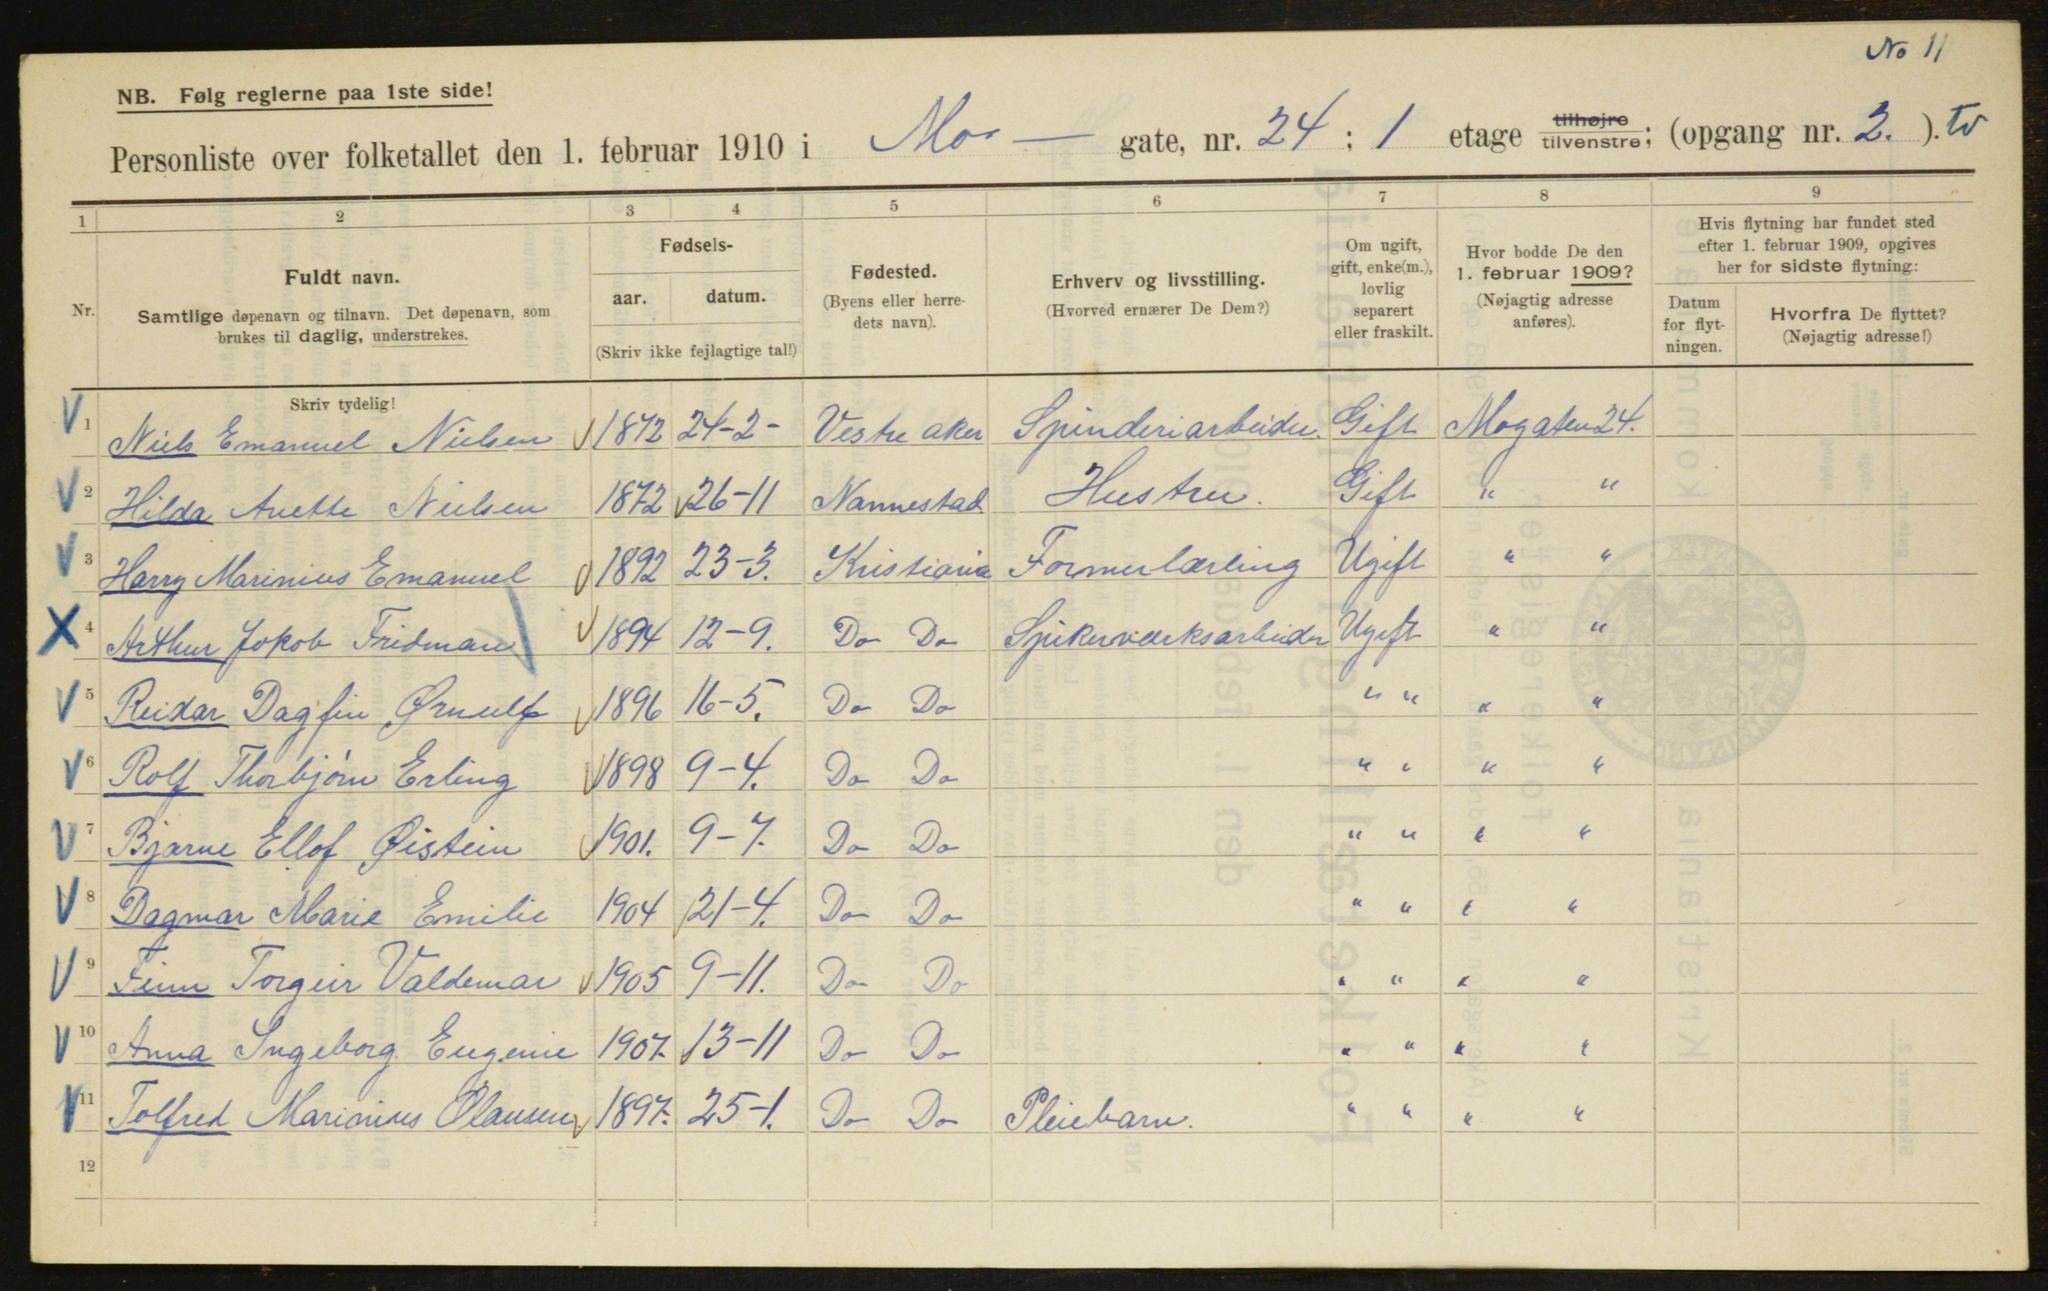 No 11
NB. Følg reglerne paa 1ste side!
Personliste over folketallet den 1. februar 1910 i Mo- gate, nr. 24 ; 1 etage tilhøjre tilvenstre; (opgang nr. 2. ). tv
1 2 3 4 5 6 7 8 9
Nr.
Fuldt navn.
Samtlige døpenavn og tilnavn. Det døpenavn, som
brukes til daglig, understrekes.
Skriv tydelig!
Fødsels-
aar. datum.
(Skriv ikke fejlagtige tal!)
Fødested.
(Byens eller herre-
dets navn).
Erhverv og livsstilling.
(Hvorved ernærer De Dem?)
Om ugift,
gift, enke(m.),
lovlig
separert
eller fraskilt.
Hvor bodde De den
1. februar 1909?
(Nøjagtig adresse
anføres).
Hvis flytning har fundet sted
efter 1. februar 1909, opgives
her for sidste flytning:
Datum
for flyt-
ningen.
Hvorfra De flyttet?
(Nøjagtig adresse!)
1 Niels Emanuel Nielsen 1872 24-2- Vestre aker Spinderiarbeider. Gift Mogaten 24.
2 Hilda Anette Nielsen 1872 26-11 Nannestad Hustru. Gift " "
3 Harry Marinius Emanuel 1892 23-3. Kristiania Formerlærling Ugift " "
4 Arthur Jokob Fridman 1894 12-9. Do Do Spikerværksarbeider Ugift " "
5 Reidar Dagfin Ørnulf 1896 16-5. Do Do " " " "
6 Rolf Thorbjørn Erling 1898 9-4. Do Do " " " "
7 Bjarne Ellof Øistein 1901. 9-7. Do Do " " " "
8 Dagmar Marie Emilie 1904 21-4. Do Do " " " "
9 Finn Torgeir Valdemar 1905 9-11. Do Do " " " "
10 Anna Ingeborg Eugenie 1907. 13-11 Do Do " " " "
11 Tolfred Marinius Olausen 1897. 25-1. Do Do Pleiebarn. " " " "
12